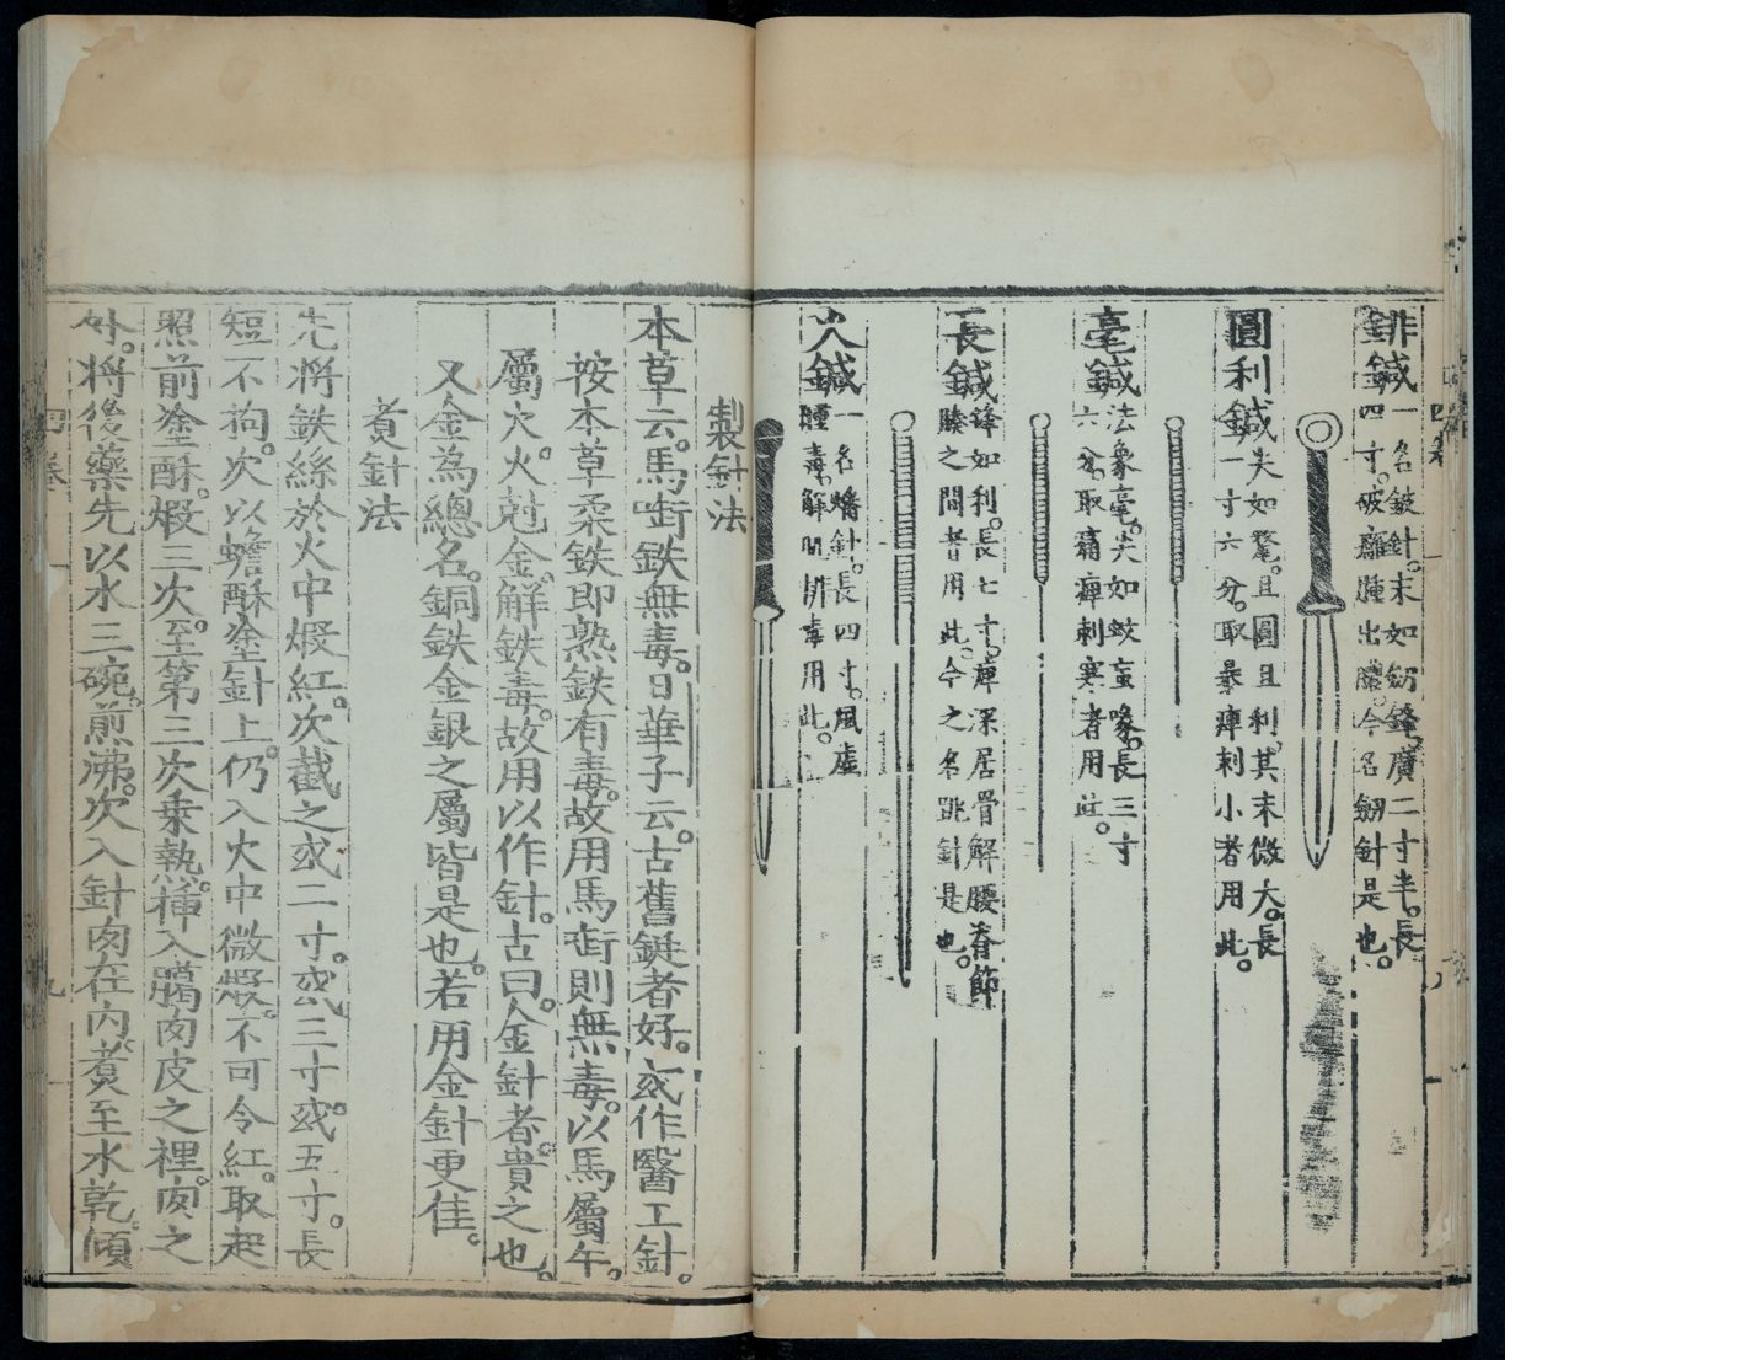 鈹鍼一名鈹針。末如劒鋒。廣二寸半。長
四寸。破癰腫出膿。今名劒針是也。
圓利鍼尖如氂。且圓且利。其末微大。長
一寸六分。取暴痺刺小者用此。
毫鍼法象毫。尖如蚊䖟喙。長三寸
六分。取痛痺刺寒者用此。
長鍼鋒如利。長七寸。痺深居骨解腰脊節
腠之間者用此。今之名跳針是也。
火鍼一名燔針。長四寸。風虛
腫毒。解肌排毒用此。
製針法
本草云。馬啣鉄無毒。日華子云。古舊鋌者好。或作醫工針。
按本草柔鉄即熟鉄有毒。故用馬啣則無毒。以馬屬午。
屬火。火尅金。解鉄毒。故用以作針。古曰。金針者。貴之也。
又金為總名。銅鉄金銀之屬皆是也。若用金針更佳。
煑針法
先將鉄絲於火中煆紅。次截之或二寸。或三寸或五寸。長
短不拘。次以蟾酥塗針上。仍入火中微煆。不可令紅。取起
照前塗酥。煆三次。至第三次乗熱。插入臈肉皮之裡。肉之
外。將後藥先以水三碗。煎沸。次入針肉在內。煑至水乾。傾
四卷
九